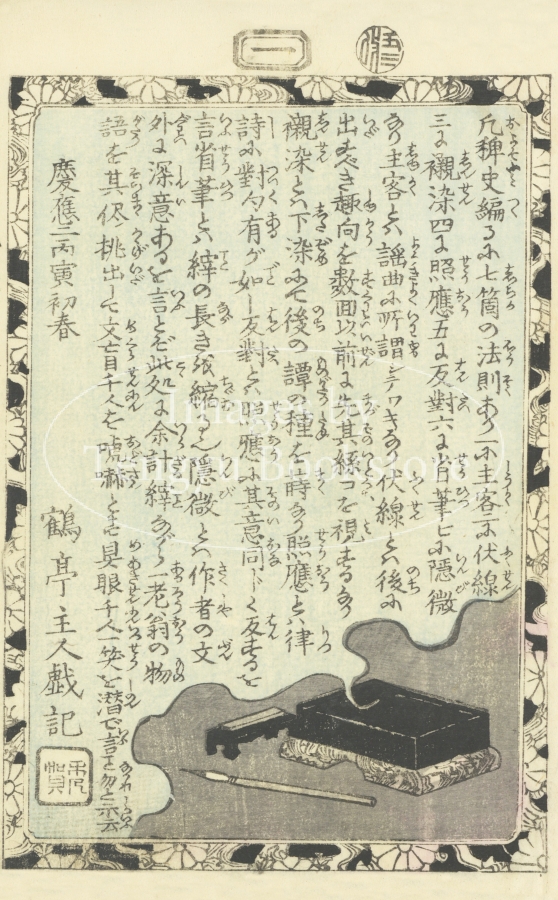 一
凡稗史編るに七箇の法則あり一に主客二に伏線
三に襯染四に照應五に反對六に省筆七に隱微
あり主客とは謡曲に所謂シテワキなり伏線とは後に
出すべき趣向を數面以前に先其糸口を視するなり
襯染とは下染にて後の譚の種を蒔なり照應とは律
詩に對句有が如し反對とは照應に其意同じく反するを
言省筆とは緯の長きを縮るなり隱微とは作者の文
外に深意あるを言とぞ此処に余計緯ながら一老翁の物
語を其侭挑出して文盲千人を唬嚇とも具眼千人一笑を潜で言を勿と示云
慶應二丙寅初春
鶴亭主人戯記
Images by
Tengu Bookstore